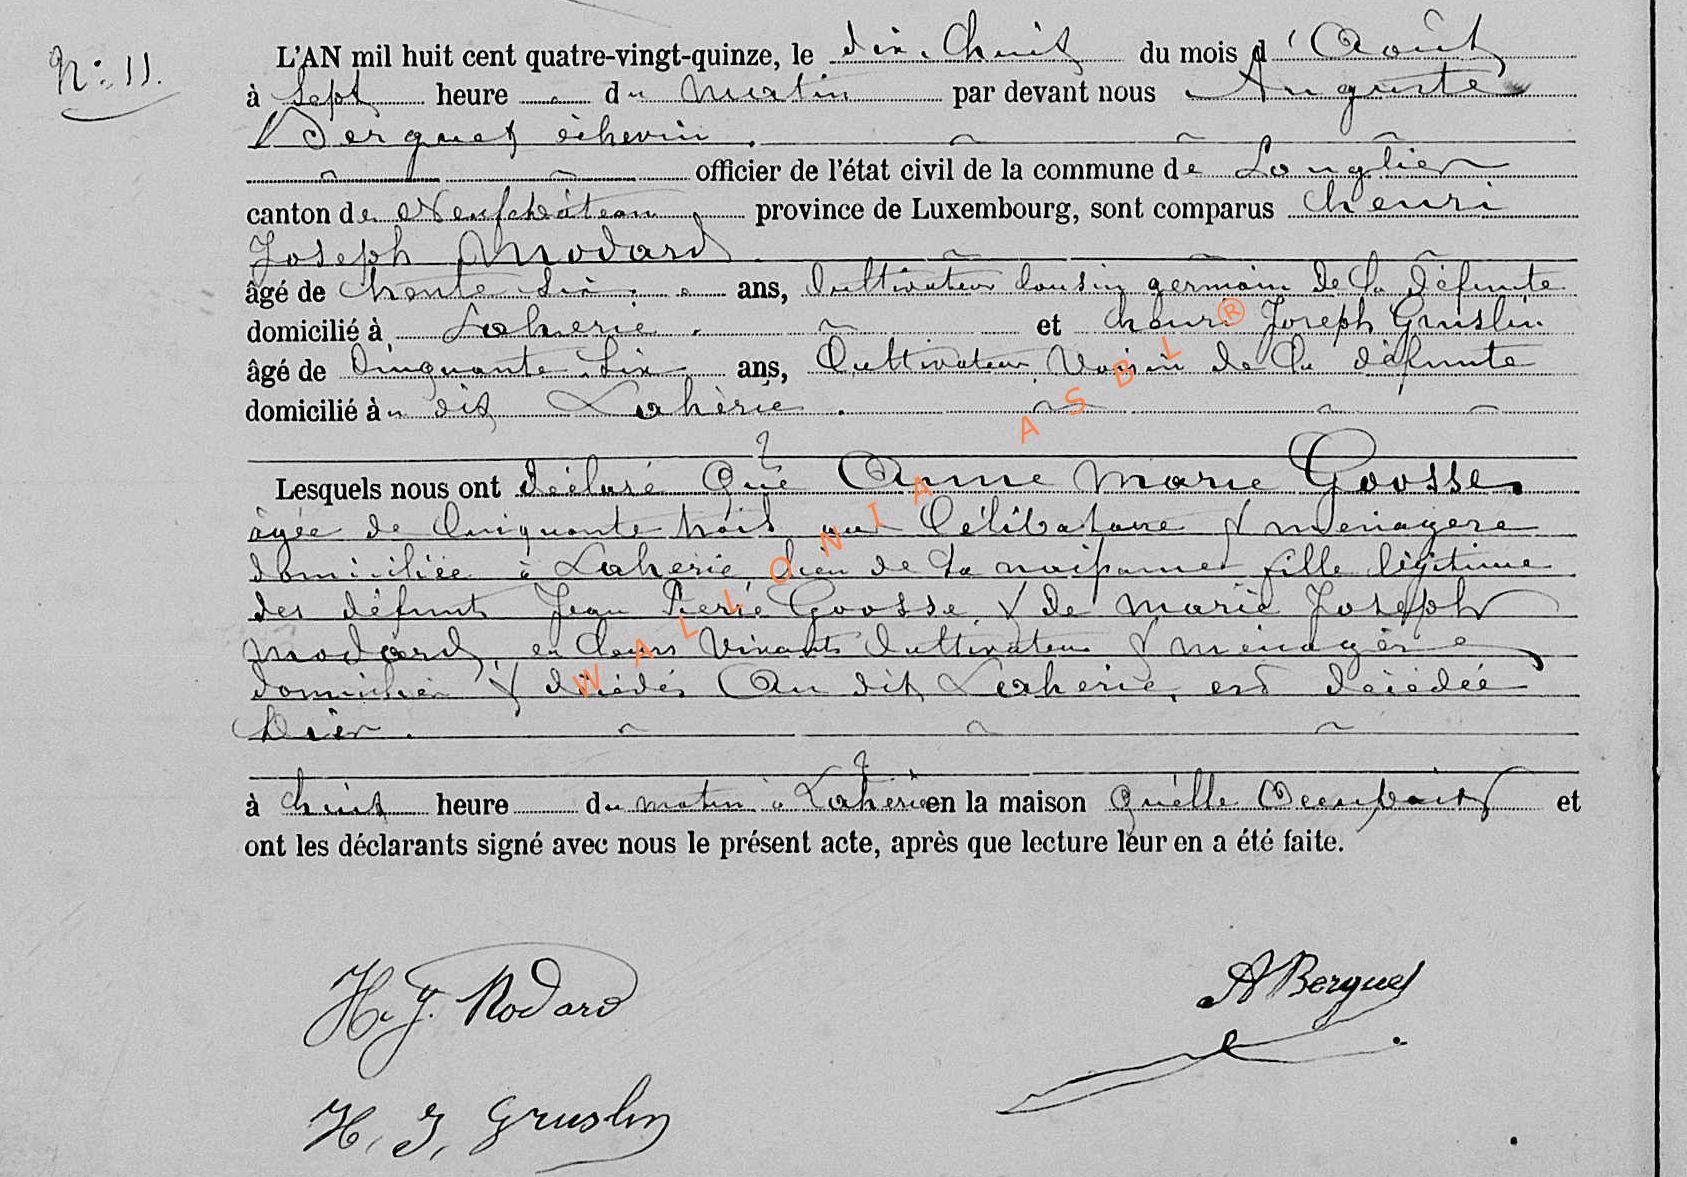 N° 11.
L'AN mil huit cent quatre-vingt-quinze, le dix-huit du mois d'Août
à sept heure du matin par devant nous Auguste
Berquet échevin.
officier de l'état civil de la commune de Longlier
canton de Neufchâteau province de Luxembourg, sont comparus henri
Joseph Modard
âgé de trente six ans, Cultivateur Cousin germain de la défunte
domicilié à Laherie. et henri Joseph Gruslin
âgé de Cinquante six ans, Cultivateur Voisin de la défunte
domicilié au dit Lahèrie.
Lesquels nous ont déclaré Que Anne Marie Goosse,
âgée de Cinquante trois ans Célibataire & menagere
domiciliée à Laherie, lieu de sa naissance fille légitime
des défunts Jean Pierre Goosse & de Marie Joseph
Modard, en leurs Vivants Cultivateur & ménagère
domiciliés & décédés Au dit Laherie, est décédée
hier.
à huit heure du matin à Laherie en la maison Qu'elle Occupait et
ont les déclarants signé avec nous le présent acte, après que lecture leur en a été faite.
H. J. Modard
A Berquet
H. J. Gruslin
WALLONIA ASBL ®